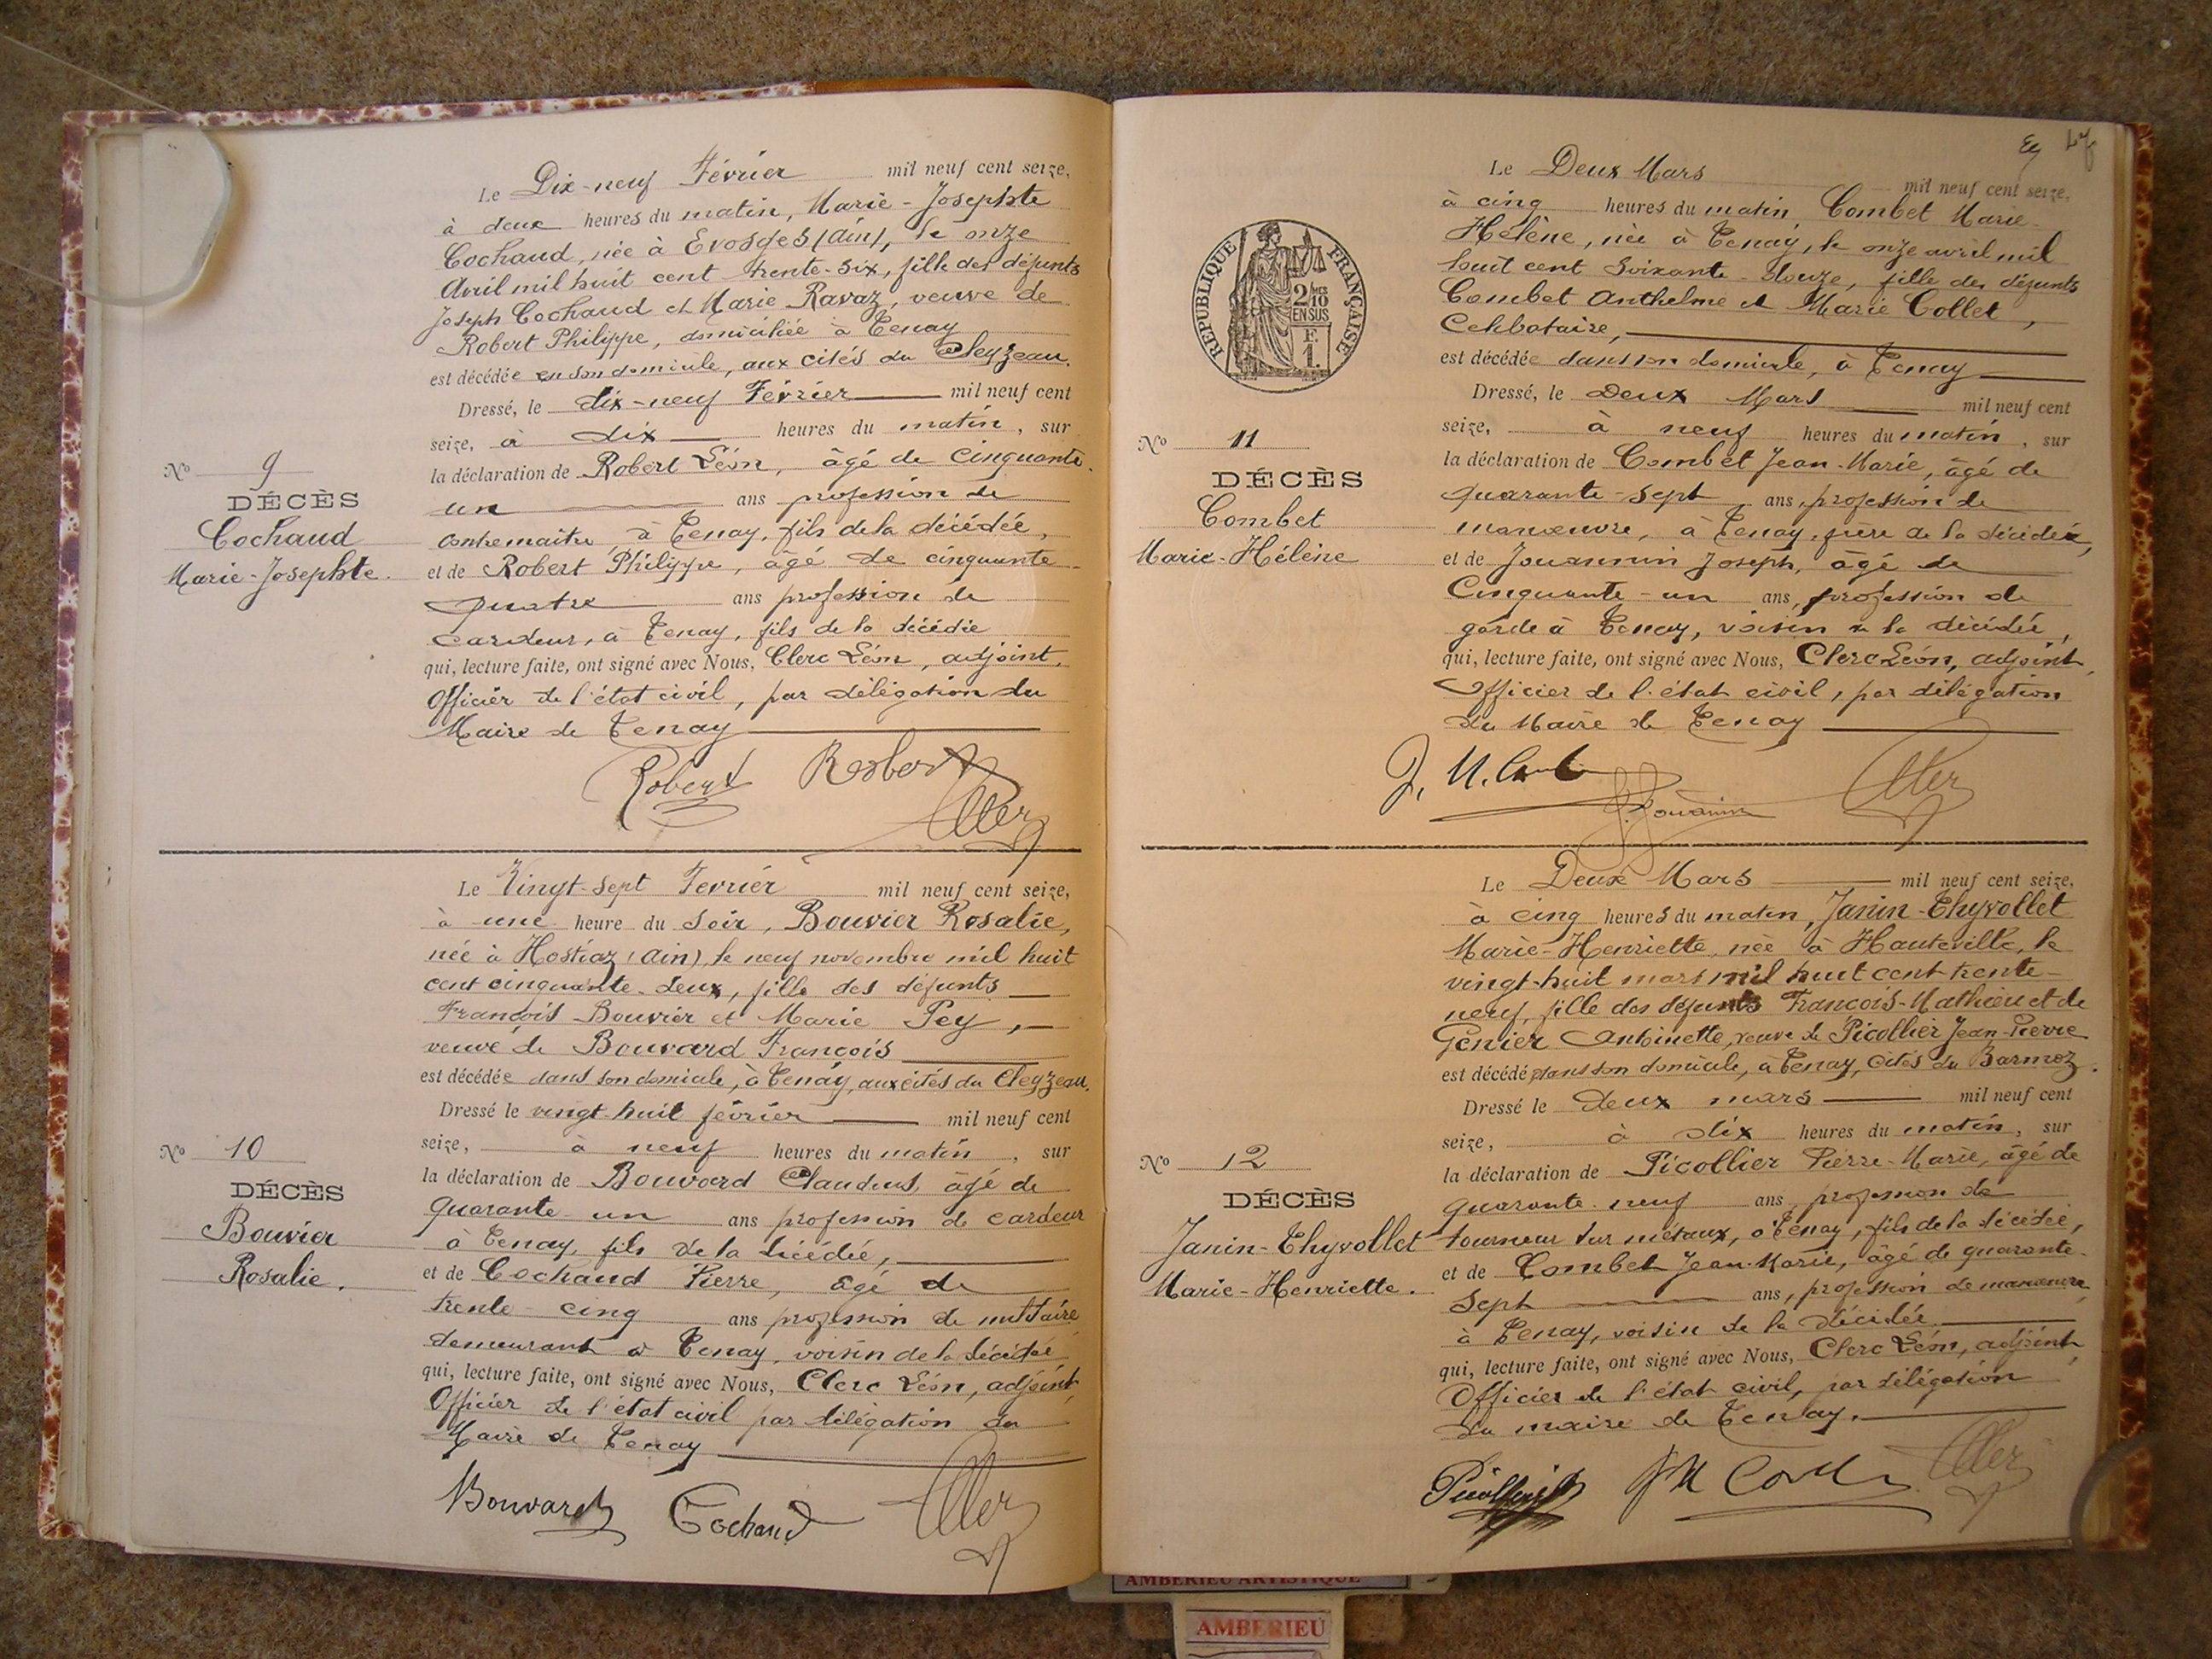 Le Dix-neuf Février mil neuf cent seize,
à deux heures du matin, Marie-Josephte
Cochaud, née à Evosges (Ain), le onze
Avril mil huit cent trente-six, fille des défunts
Joseph Cochaud et Marie Ravaz, veuve de
Robert Philippe, domiciliée à Tenay
est décédée en son domicile, aux cités du Cleyzeau.
Dressé, le dix-neuf Février mil neuf cent
seize, à dix heures du matin, sur
la déclaration de Robert Léon, âgé de cinquante-
un ans profession de
contremaître à Tenay, fils de la décédée,
et de Robert Philippe, âgé de cinquante
quatre ans profession de
cardeur, à Tenay, fils de la décédée
qui, lecture faite, ont signé avec Nous, Clerc Léon, adjoint,
Officier de l'état civil, par délégation du
Maire de Tenay
Robert Robert
Clerc
No 9
DÉCÈS
Cochaud
Marie-Josephte.
Le Vingt-sept Fevrier mil neuf cent seize,
à une heure du Soir, Bouvier Rosalie,
née à Hostiaz (Ain), le neuf novembre mil huit
cent cinquante-deux, fille des défunts
François Bouvier et Marie Pey,
veuve de Bouvard François
est décédée dans son domicile, à Tenay, aux cités du Cleyzeau.
Dressé le vingt-huit février mil neuf cent
seize, à neuf heures du matin, sur
la déclaration de Bouvard Claudius, âgé de
quarante-un ans profession de cardeur
à Tenay, fils de la décédée,
et de Cochaud Pierre, âgé de
trente-cinq ans profession de militaire
demeurant à Tenay, voisin de la décédée
qui, lecture faite, ont signé avec Nous, Clerc Léon, adjoint,
Officier de l'état civil par délégation du
Maire de Tenay
Bouvard Cochaud Clerc
No 10
DÉCÈS
Bouvier
Rosalie.
47
Le Deux Mars mil neuf cent seize,
à cinq heures du matin Combet Marie-
Hélène, née à Tenay, le onze avril mil
huit cent soixante-douze, fille des défunts
Combet Anthelme et Marie Collet,
Celibataire,
est décédée dans son domicile, à Tenay
Dressé, le Deux Mars mil neuf cent
seize, à neuf heures du matin, sur
la déclaration de Combet Jean-Marie, âgé de
quarante-sept ans, profession de
manœuvre, à Tenay, frère de la décédée,
et de Jouannin Joseph, âgé de
Cinquante-un ans, profession de
garde à Tenay, voisin de la décédée,
qui, lecture faite, ont signé avec Nous, Clerc Léon, adjoint,
Officier de l'état civil, par délégation
du Maire de Tenay
J. M. Combet
J. Jouannin Clerc
RÉPUBLIQUE FRANÇAISE
2/10 MES
EN SUS
F.
1.
No 11
DÉCÈS
Combet
Marie-Hélène
Le Deux Mars mil neuf cent seize,
à cinq heures du matin, Janin-Thyvollet
Marie-Henriette, née à Hauteville, le
vingt-huit mars mil huit cent trente-
neuf, fille des défunts François-Mathieu et de
Génier Antoinette, veuve de Picollier Jean-Pierre
est décédée dans son domicile, à Tenay, cités du Barmoz.
Dressé le deux mars mil neuf cent
seize, à dix heures du matin, sur
la déclaration de Picollier Pierre-Marie, âgé de
quarante-neuf ans, profession de
tourneur sur métaux, à Tenay, fils de la décédée,
et de Combet Jean-Marie, âgé de quarante-
sept ans, profession de manœuvre
à Tenay, voisin de la décédée
qui, lecture faite, ont signé avec Nous, Clerc Léon, adjoint,
Officier de l'état civil, par délégation
du maire de Tenay.
Picollier J M Combet Clerc
No 12
DÉCÈS
Janin-Thyvollet
Marie-Henriette.
AMBERIEU ARTISTIQUE
AMBERIEU